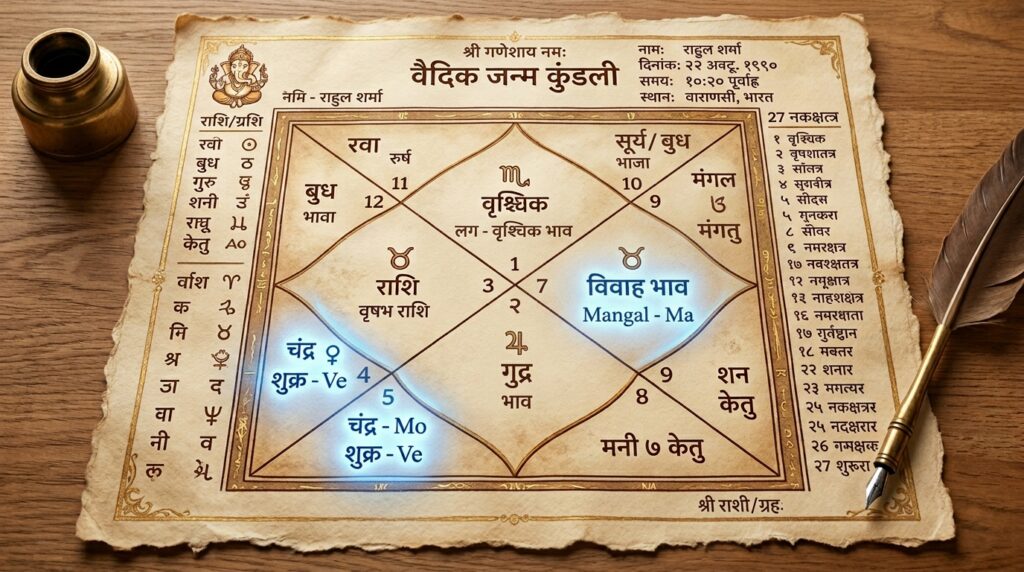 श्री गणेशाय नमः
वैदिक जन्म कुंडली
नामः राहुल शर्मा
दिनांकः २२ अक्टू. १९९०
समयः १०:२० पूर्वाह्न
स्थानः वाराणसी, भारत
नमि - राहुल शर्मा
राशि/ग्रशि
रवी
बुध ठ
गुरु
शनी
राघु
केतु AO
र्वाश ♈
क
मि ♉
श्र
जा द
वा Ψ
नी व
ल
रवा
रुर्ष
11
बुध
भावा
12
♏
वृश्चिक
लग - वृश्चिक भाव
1
सूर्य/ बुध
भाजा
10
9
मंगल
मंगतु
♉
राशि
वृषभ राशि
3
2
7
♉
विवाह भाव
Mangal - Ma
चंद्र ♀
शुक्र - Ve
4
5
चंद्र - Mo
शुक्र - Ve
♃
गुद्र
भाव
9
8
शन
केतु
मनी ७ केतु
27 नकक्षत्न
१ वृश्चिक
२ वृषशातत्र
३ सॉतत्र
४ सुगवीत्र
५ सीदस
५ मुनकरा
८ सीवर
९ नमरक्षत्र
१७ नवश्क्षतत्र
१२ नमूक्षात्र
१३ नाहशक्षत्र
१६ नमरक्षाता
१७ गुर्वष्ठान
१८ मबतर
२२ शनार
२३ मगत्यर
२५ नकक्षत्रर
२५ नदक्षरार
26 नमक्षक
27 शुरूरा
श्री राशी/ग्रहः